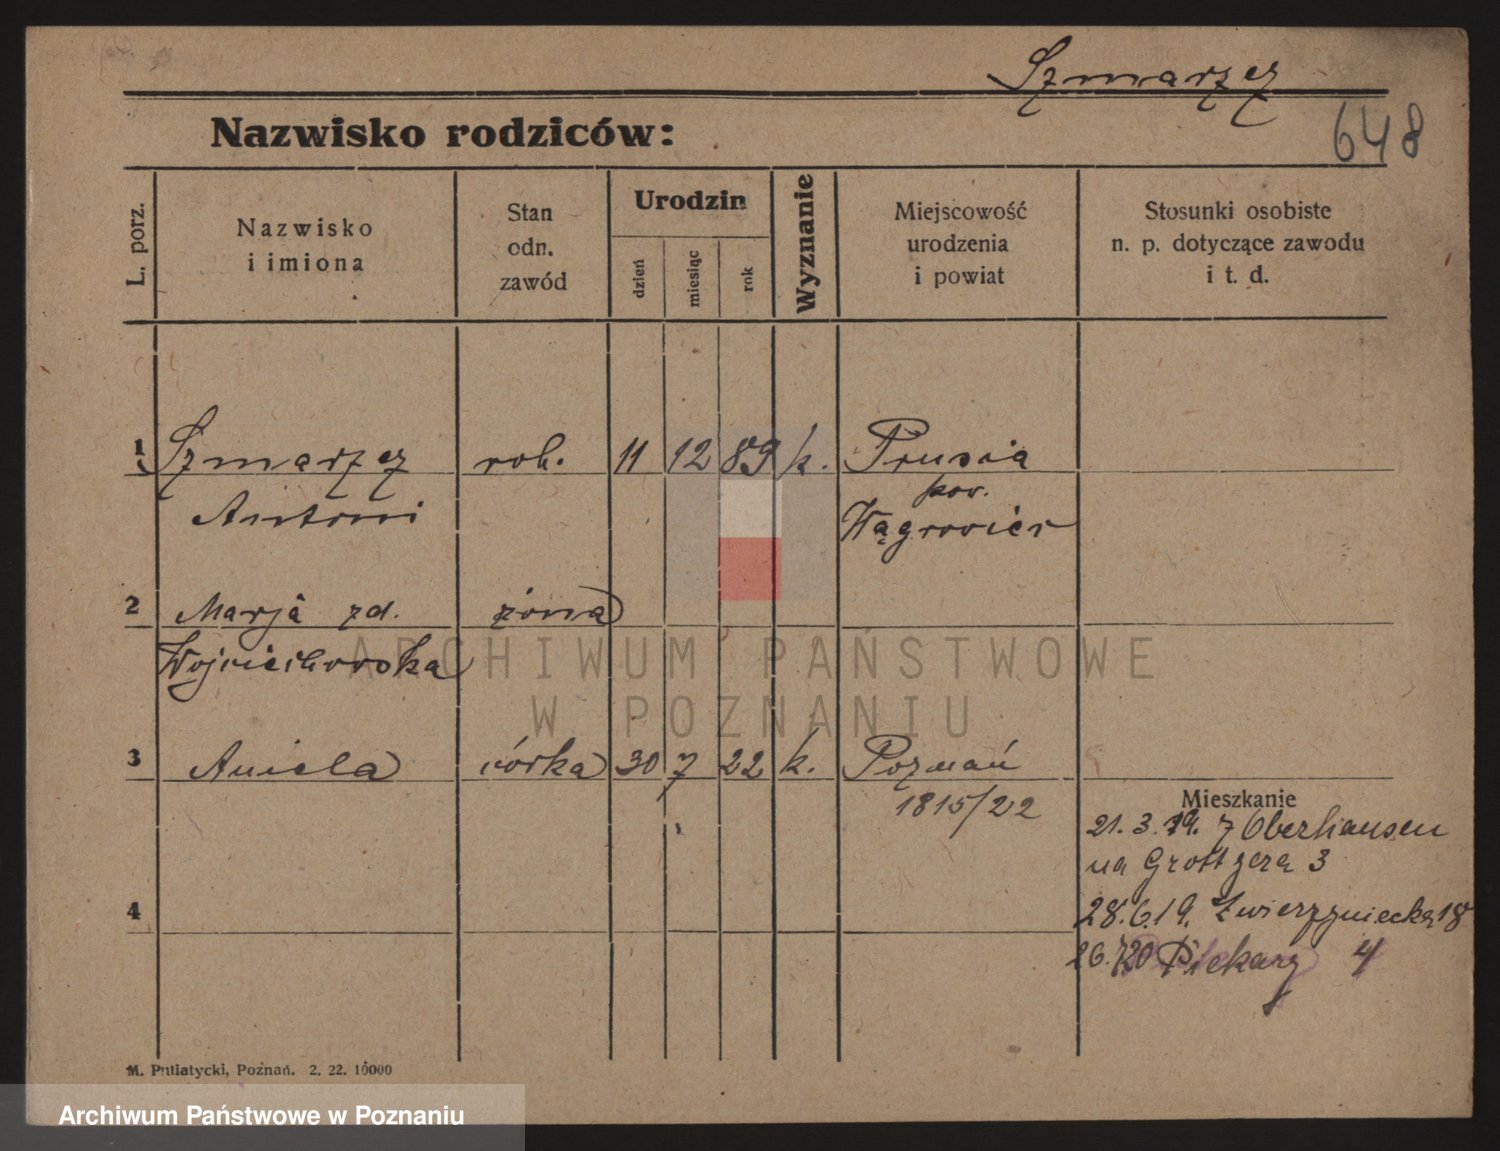 Szmarzcz
648
Nazwisko rodziców:
L. porz.
Nazwisko
i imiona
Stan
odn.
zawód
Urodzin
dzień
miesiąc
rok
Wyznanie
Miejscowość
urodzenia
i powiat
Stosunki osobiste
n. p. dotyczące zawodu
i t. d.
1 rob. 11 12 89 k.
Antoni pow.
2 Marja zd. żona
Wojciechowska
3 Aniela córka 30 7 22 k. Poznań
1815/22
Mieszkanie
21. 3. 19. z Oberhausen
na Grottgera 3
4
28.6.19. Zwierzyniecka 18
Piekary 4
M. Putiatycki, Poznań. 2. 22. 10000
ARCHIWUM PAŃSTWOWE
W POZNANIU
Archiwum Państwowe w Poznaniu